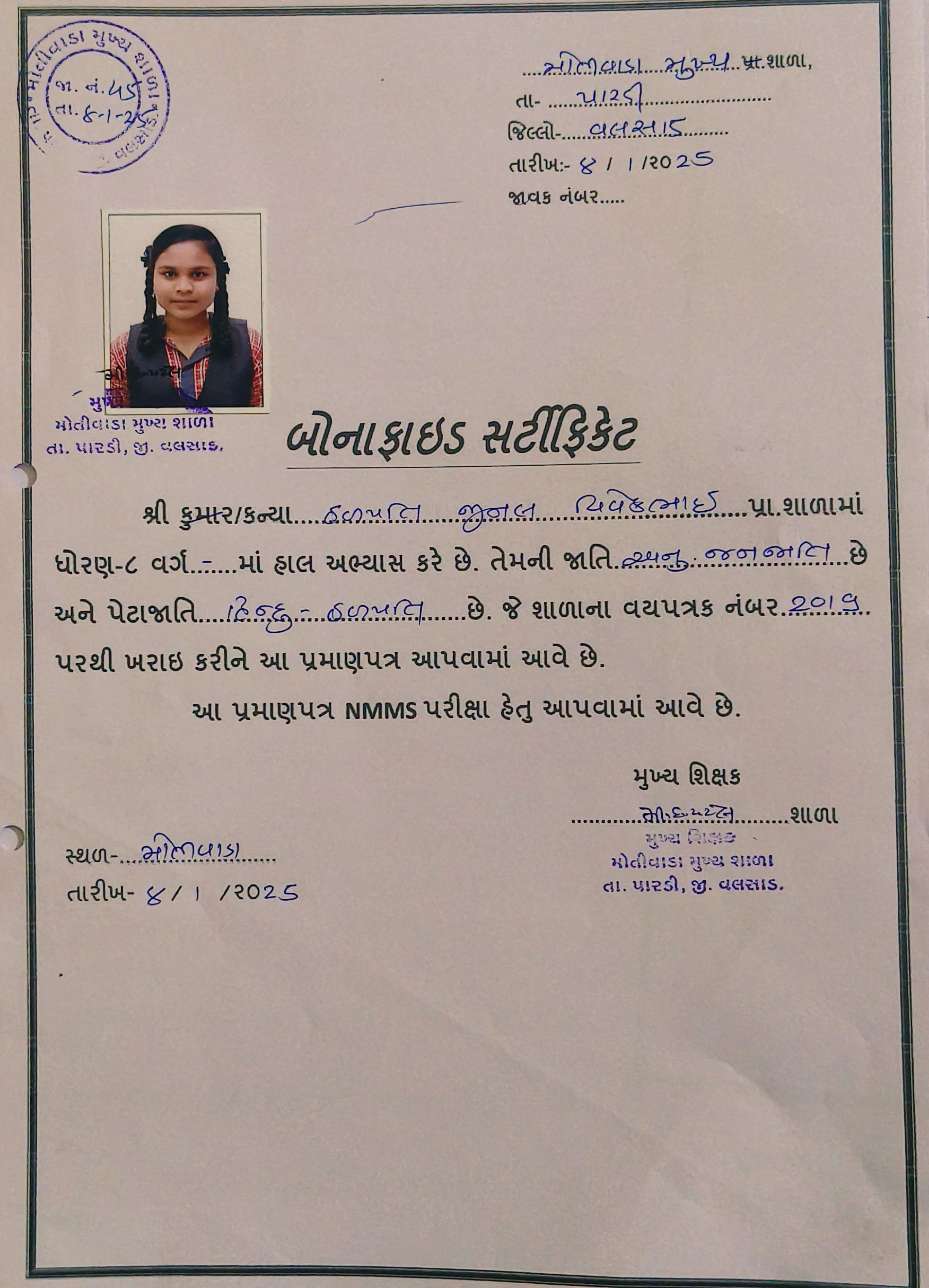 મોતીવાડા મુખ્ય શાળા
જા. નં. 45
તા. ૪-1-25
વલસાડ
મોતીવાડા મુખ્ય પ્રા.શાળા,
તા- પારડી
જિલ્લો- વલસાડ
તારીખ:- ૪ / 1 /૨૦25
જાવક નંબર.....
મોતીવાડા મુખ્ય શાળા
તા. પારડી, જી. વલસાડ.
બોનાફાઇડ સર્ટીફિકેટ
શ્રી કુમાર/કન્યા હળપતિ જીનલ વિવેકભાઈ પ્રા.શાળામાં
ધોરણ-૮ વર્ગ..-...માં હાલ અભ્યાસ કરે છે. તેમની જાતિ અનુ. જનજાતિ છે
અને પેટાજાતિ હિન્દુ - હળપતિ છે. જે શાળાના વયપત્રક નંબર ૨૦૧૬
પરથી ખરાઇ કરીને આ પ્રમાણપત્ર આપવામાં આવે છે.
આ પ્રમાણપત્ર NMMS પરીક્ષા હેતુ આપવામાં આવે છે.
મુખ્ય શિક્ષક
શાળા
મુખ્ય શિક્ષક
મોતીવાડા મુખ્ય શાળા
તા. પારડી, જી. વલસાડ.
સ્થળ- મોતીવાડા
તારીખ- ૪ / 1 /૨૦25